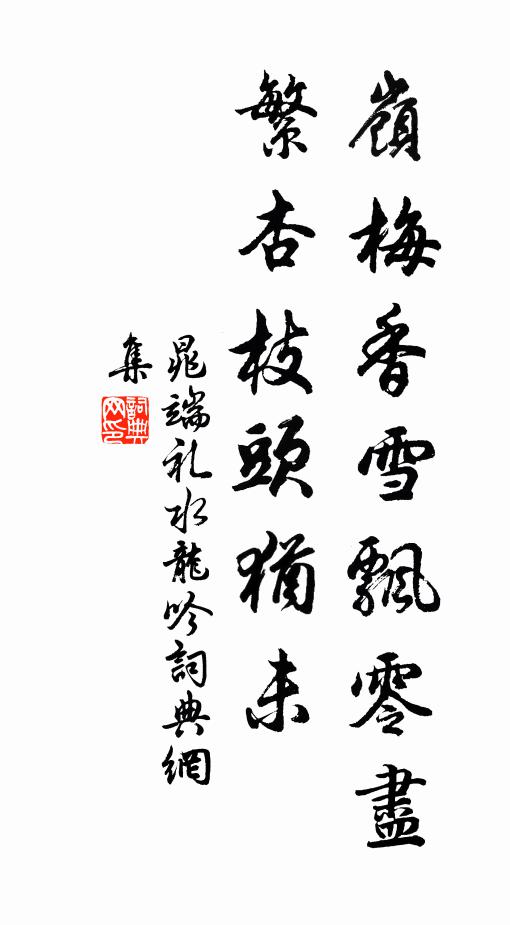 嶺梅香雪飄零盡
繁杏枝頭猶未
晁端礼水龍吟詞典網
集
詞典
网印